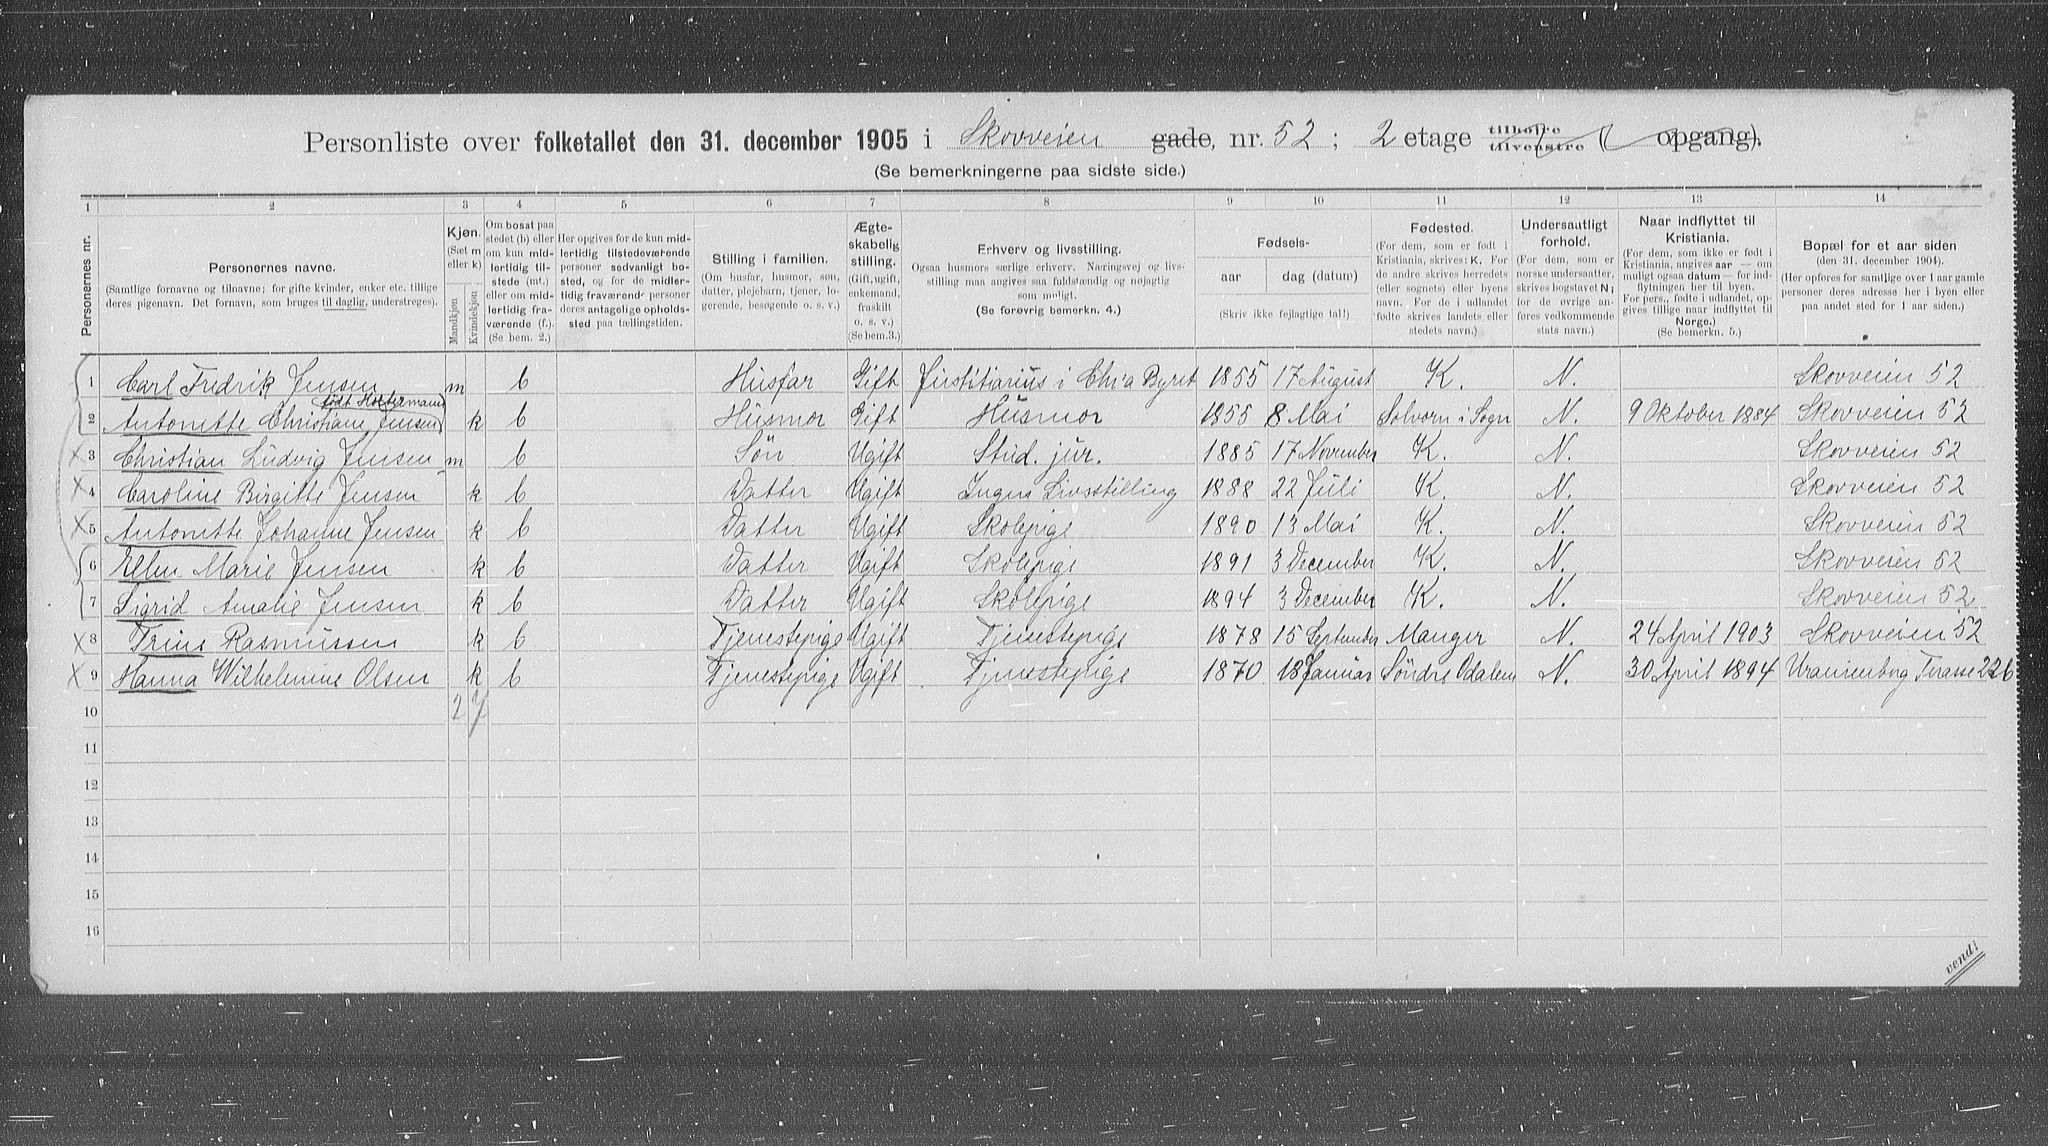 Personliste over folketallet den 31. december 1905 i Skovveien gade, nr. 52 ; 2 etage tilhøire tilvenstre ( opgang).
(Se bemerkningerne paa sidste side.)
1 2 3 4 5 6 7 8 9 10 11 12 13 14
Personernes nr.
Personernes navne.
(Samtlige fornavne og tilnavne; for gifte kvinder, enker etc. tillige
deres pigenavn. Det fornavn, som bruges til daglig, understreges).
Kjøn.
(Sæt m
eller k)
Mandkjøn
Kvindekjøn
Om bosat paa
stedet (b) eller
om kun mid-
lertidig til-
stede (mt.)
eller om mid-
lertidig fra-
værende (f.).
(Se bem. 2.)
Her opgives for de kun mid-
lertidig tilstedeværende
personer sedvanligt bo-
sted, og for de midler-
tidig fraværende personer
deres antagelige opholds-
sted paa tællingstiden.
Stilling i familien.
(Om husfar, husmor, søn,
datter, plejebarn, tjener, lo-
gerende, besøgende o. s. v.)
Ægte-
skabelig
stilling.
(Gift, ugift,
enkemand,
fraskilt
o. s. v.)
(Se bem.3.)
Erhverv og livsstilling.
Ogsaa husmors særlige erhverv. Næringsvej og livs-
stilling maa angives saa fuldstændig og nøjagtig
som muligt.
(Se forøvrig bemerkn. 4.)
Fødsels-
aar
dag (datum)
(Skriv ikke fejlagtige tal!)
Fødested.
(For dem, som er født i
Kristiania, skrives: K. For
de andre skrives herredets
(eller sognets) eller byens
navn. For de i udlandet
fødte skrives landets eller
stedets navn.)
Undersaatligt
forhold.
(For dem, som er
norske undersaatter,
skrives bogstavet N;
for de øvrige an-
føres vedkommende
stats navn.)
Naar indflyttet til
Kristiania.
(For dem, som ikke er født i
Kristiania, angives aar — om
muligt ogsaa datum — for ind-
flytningen her til byen.
For pers., fødte i udlandet, op-
gives tillige naar indflyttet til
Norge.)
(Se bemerkn. 5.)
Bopæl for et aar siden
(den 31. december 1904).
(Her opføres for samtlige over 1 aar gamle
personer deres adresse her i byen eller
paa andet sted for 1 aar siden.)
1 Carl Fredrik Jensen m b Husfar Gift Justitiarius i Chr'a Byret 1855 17 August K. N. Skovveien 52
født Holtermann
2 Antonette Christiane Jensen k b Husmor Gift Husmor 1855 8 Mai Solvorn i Sogn N. 9 Oktober 1884 Skovveien 52
3 Christian Ludvig Jensen m b Søn Ugift Stud. jur. 1885 17 November K. N. Skovveien 52
4 Caroline Birgitte Jensen k b Datter Ugift Ingen Livsstilling 1888 22 Juli K. N. Skovveien 52
5 Antonette Johanne Jensen k b Datter Ugift Skolepige 1890 13 Mai K. N. Skovveien 52
6 Ellen Marie Jensen k b Datter Ugift Skolepige 1891 3 December K. N. Skovveien 52
7 Sigrid Amalie Jensen k b Datter Ugift Skolepige 1894 3 December K. N. Skovveien 52
8 Trine Rasmussen k b Tjenestepige Ugift Tjenestepige 1878 15 September Manger N. 24 April 1903 Skovveien 52
9 Hanna Wilhelmine Olsen k b Tjenestepige Ugift Tjenestepige 1870 18 Januar Søndre Odalen N. 30 April 1894 Uranienborg Terasse
10 2 7
11
12
13
14
15
16
vend!